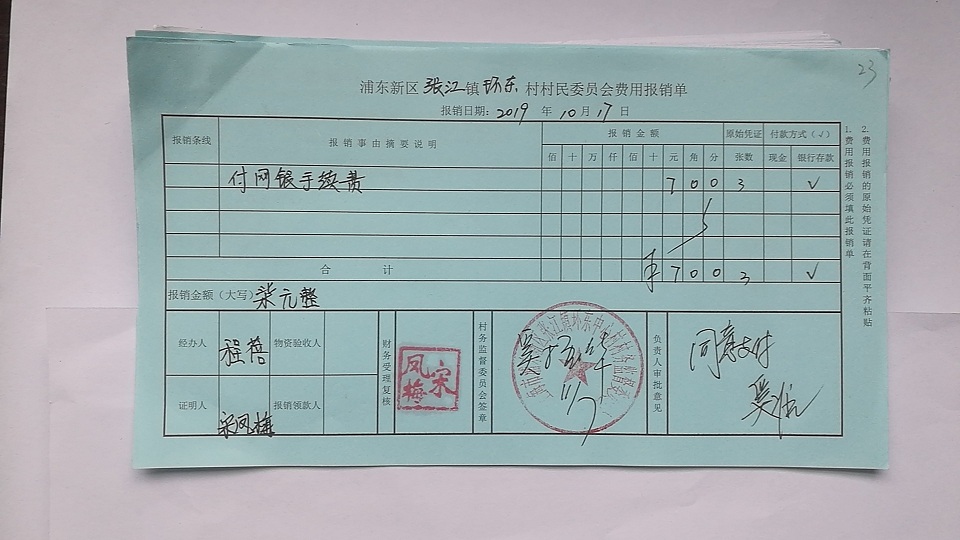 23
浦东新区张江镇环东村村民委员会费用报销单
报销日期：2019年10月17日
报销条线 报销事由摘要说明 报销金额 原始凭证 付款方式（√）
佰 十 万 仟 佰 十 元 角 分 张数 现金 银行存款
付网银手续费 7 0 0 3 √
合计 ¥ 7 0 0 3 √
报销金额（大写）柒元整
经办人 程蓓 物资验收人
证明人 宋凤梅 报销领款人
财务受理复核
宋凤梅
村务监督委员会签章
11/7
负责人审批意见
同意支付
1. 费用报销必须填此报销单
2. 费用报销的原始凭证请在背面平齐粘贴